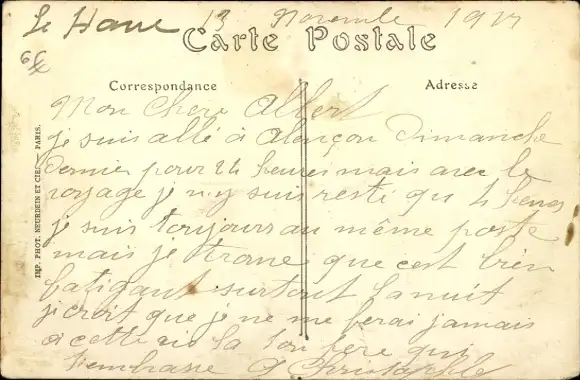 Le Havre 13 Novembre 19
Carte Postale
Correspondance
Adresse
Mon Chere Albert
je suis allé a Alençon Dimanche
dernier pour 24 heures mais avec le
voyage je n y suis resté qu 4 heures
je suis toujours au même poste
mais je trouve que cest bien
fatigant surtout la nuit
je croit que je ne me ferai jamais
a cette vie la ton frere qui
t'embrasse
IMP. PHOT. NEURDEIN ET CIE. PARIS.